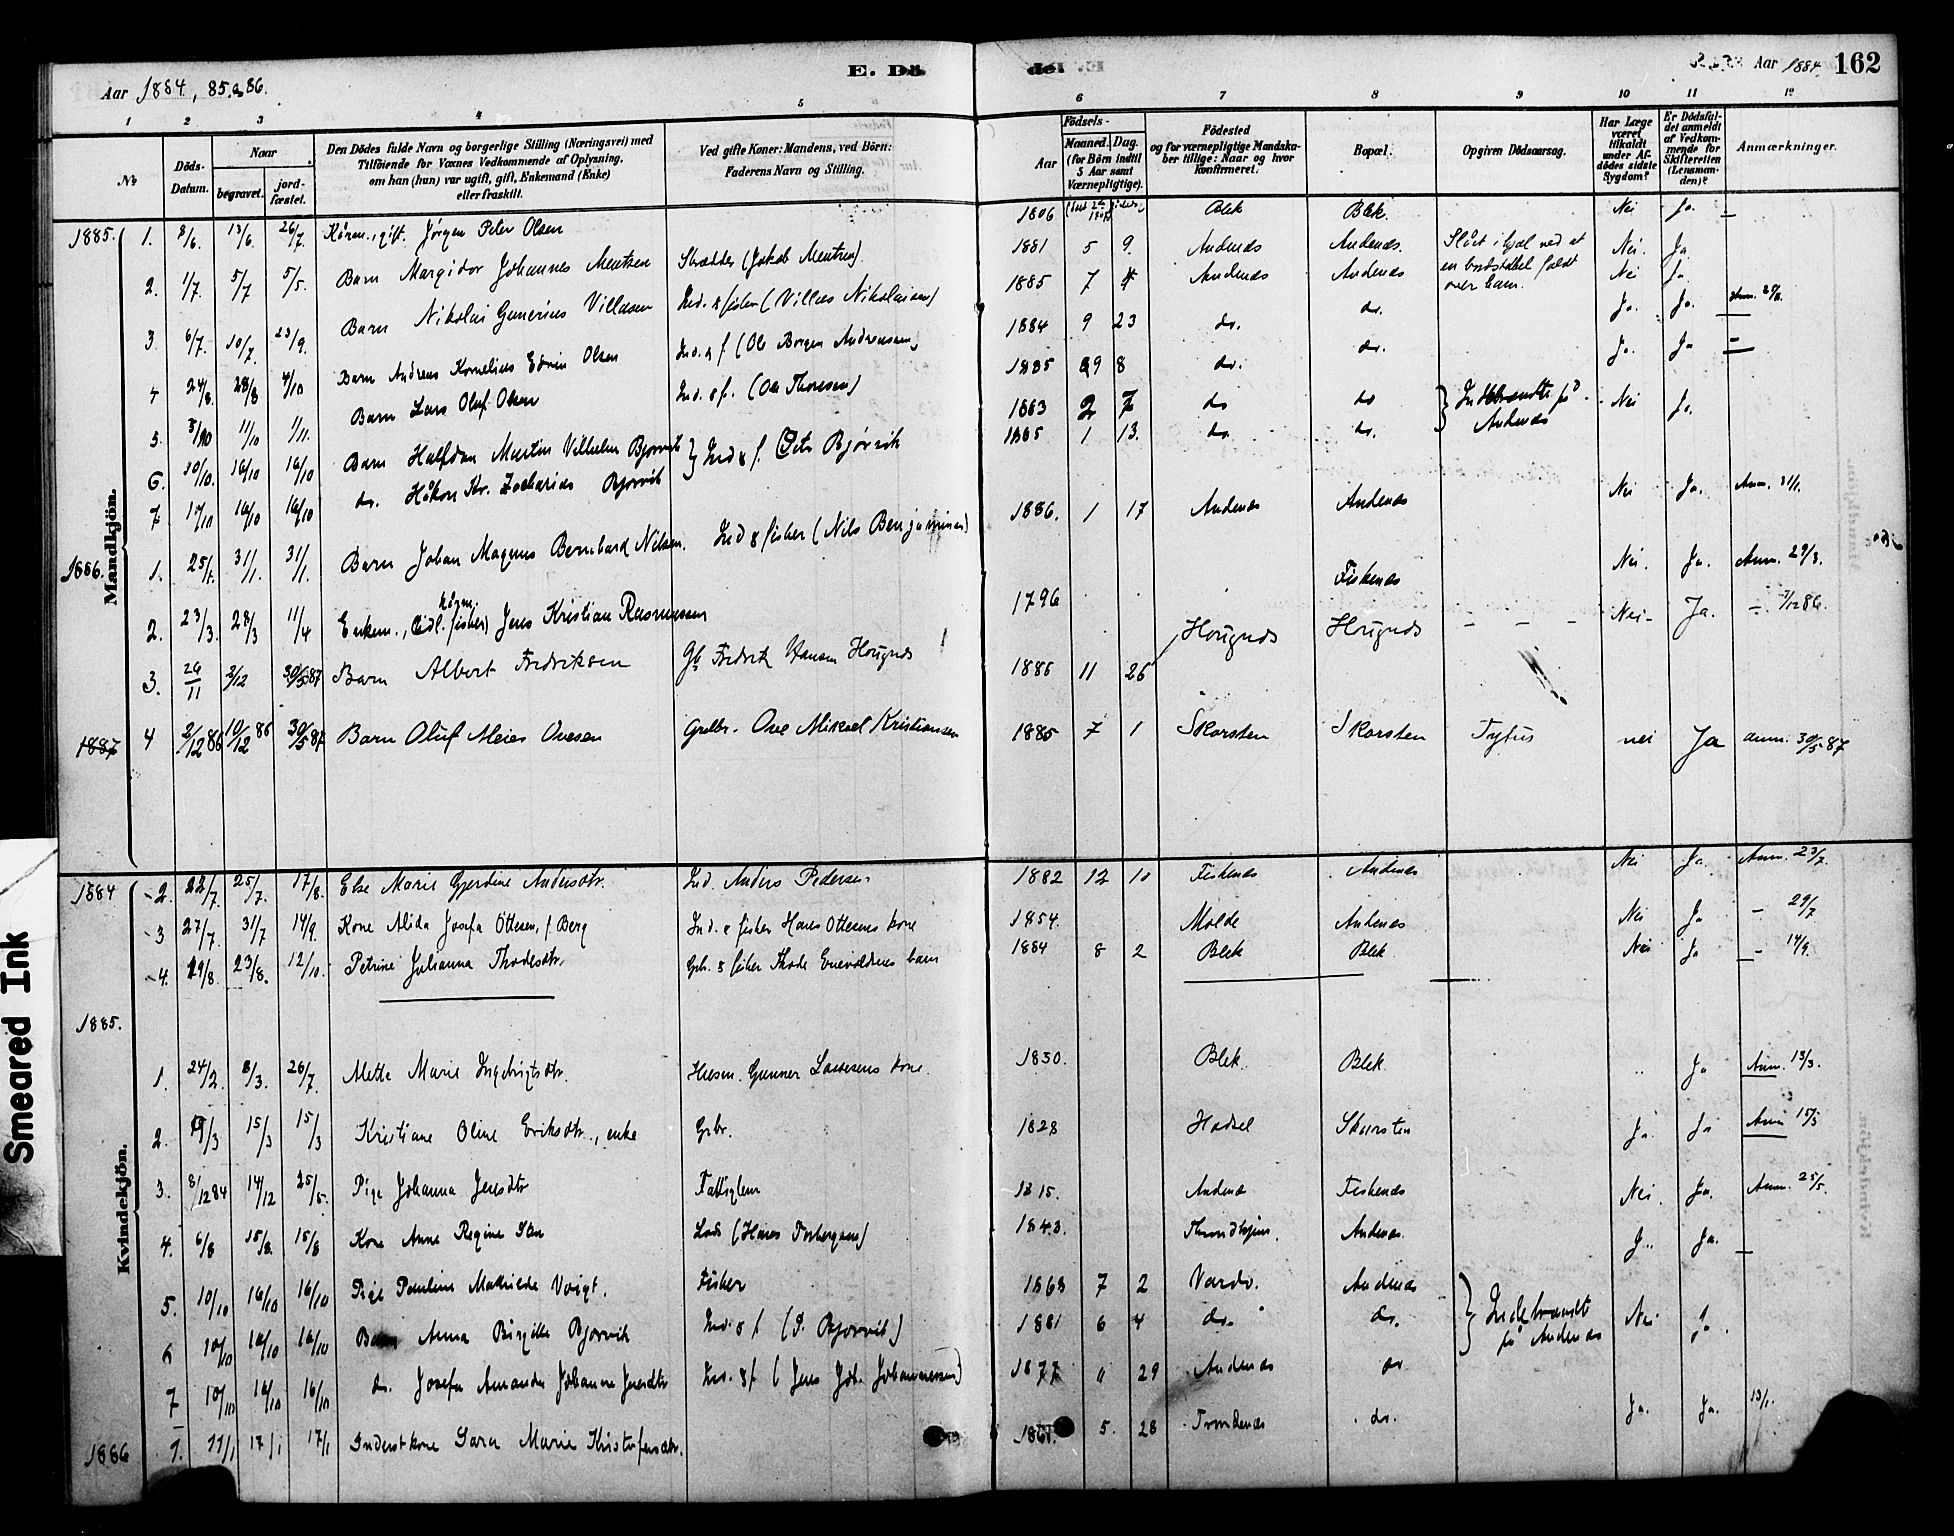 Aar 1884, 85 & 86.
E. Dö
de.
Aar 1884
162
1 2 3 4 5 6 7 8 9 10 11 12
№
Döds-Datum.
Naar
begravet.
jord-fæstet.
Den Dödes fulde Navn og borgerlige Stilling (Næringsvei) med
Tilföiende for Voxnes Vedkommende af Oplysning,
om han (hun) var ugift, gift, Enkemand (Enke)
eller fraskilt.
Ved gifte Koner: Mandens, ved Börn:
Faderens Navn og Stilling.
Födsels-
Aar
Maaned. Dag.
(for Börn indtil
5 Aar samt
Værnepligtige).
Födested
og for værnepligtige Mandska-
ber tillige: Naar og hvor
konfirmeret.
Bopæl.
Opgiven Dödsaarsag.
Har Læge
været
tilkaldt
under Af-
dödes sidste
Sygdom?
Er Dödsfal-
det anmeldt
af Vedkom-
mende for
Skifteretten
(Lensman-
den)?
Anmærkninger.
Mandkjön.
1885. 1. 8/6. 13/6. 26/7. gift. Jørgen Peter Olsen 1806 Blek Blek. Nei Ja.
2. 1/7. 5/7 5/5. Barn Margidor Johannes Mentsen Skrædder (Jakob Mentsen). 1881 5 9 Andenæs Andenæs. Slået ihjæl ved at en bordstabel faldt over ham. Nei. Ja
3. 6/7. 10/7. 23/9. Barn Nikolai Gunerius Villasen Ind. & fisher (Villas Nikolaisen) 1885 7 Andenæs Andenæs Nei Ja
4 24/8. 28/8 4/10 Barn Andreas Kornelius Edvin Olsen Ind. & f (Ole Borgen Andreassen) 1884 9 23 do. do. Ja. Ja. Anm.
5. 11/10 1/11. Barn Lars Oluf Olsen Ind. & f. (Ole Thoresen) 1885 9 8 do. do. Ja. Ja
6. 10/10. 16/10 16/10 Barn Halfdan Martin Vilhelm Bjørvik } Ind & f. Peter Bjørvik 1883 2 7 do do } Indebrændte på Andenæs Nei Ja.
7 10/10 16/10 16/10 do. Håkon Kr. Zacharias Bjørvik 1885 1 13. do. do.
1886. 1. 25/1. 31/1. 31/1. Barn Johan Magnus Bernhard Nilsen. Ind & fisher (Nils Benjaminsen) 1886. 1 17 Andenæs Andenæs Nei Ja. Anm. 31/1.
2. 23/3. 28/3 11/4 Enkem., (tidl. fisher) Jens Kristian Rasmussen 1796 Fiskenæs Nei. Ja. Anm. 29/3.
3. 26/11 2/12 30/5 87 Barn Albert Fredriksen Gb Fredrik Hansen Hougnæs 1886 11 26 Hougnæs Hougnæs - - - Nei- Ja. 86.
1887 4 2/12 86 10/12 86 30/5 87 Barn Oluf Meier Ovesen Grdbr. Ove Mikael Kristiansen 1885 7 1 Skorsten Skorsten Tyfus nei Ja anm. 30/5 87
Kvindekjön.
1884 2. 22/7. 25/7. 17/8. Else Marie Gjerdine Andersdtr. Ind. Anders Pedersen 1882 12 10 Fiskenæs Andenæs Nei Ja. Anm. 23/7.
3 27/7. 31/7 14/9. Kone Alida Josefa Ottesen, f Berg Ind. & fisher Hans Ottesens kone 1854. Molde Andenæs Nei Ja - 29/7
4. 19/8. 23/8. 12/10. Petrine Julianna Thodesdtr. Gb. & fisher Thode Enevoldsens barn 1884 8 2 Blek Blek. Nei Ja - 14/9.
1885.
1. 24/2. 8/3. 26/7. Mette Marie Ingebrigtsdtr. Husm. Gunner Lassesens kone. 1830. Blek. Blek. " Ja Anm. 13/3.
2. 9/3 15/3 15/3 Kristiane Oline Eriksdtr., enke Grbr. 1828 Hadsel Skorsten Ja. Ja Anm 15/3
3. 8/12 84 14/12 25/5. Pige Johanna Jensdtr Fattiglem 1815. Andenæs Fiskenæs Nei. Ja. Anm. 25/5.
4. 6/8 15/8. 15/8 Kone Anne Regine Lods (Hans Torbergsen) 1843. Throndhjem. Andenæs. J.. Ja.
5. 10/10 16/10 16/10 Pige Pauline Mathilde Voigt. Fisher 1863 7 2 Vardø. Andenæs } Indebrændt på Andenæs Nei Ja
6 10/10 16/10 16/10 Barn Anna Birgitte Bjørvik Ind. & f (P. Bjørvik) 1881 6 4 do. do.
7 10/10 16/10 16/10 do. Josefa Amanda Johanna Jensdtr Ind. & f (Jens Joh. Johannessen) 1877 " 29 Andenæs do
1886 1. 11/1 17/1 17/1 Inderstkone Sara Marie Kristofersdtr. 1861. 5. 28 Trondenæs do. Ja. Ja. 13/1.
Smeared Ink